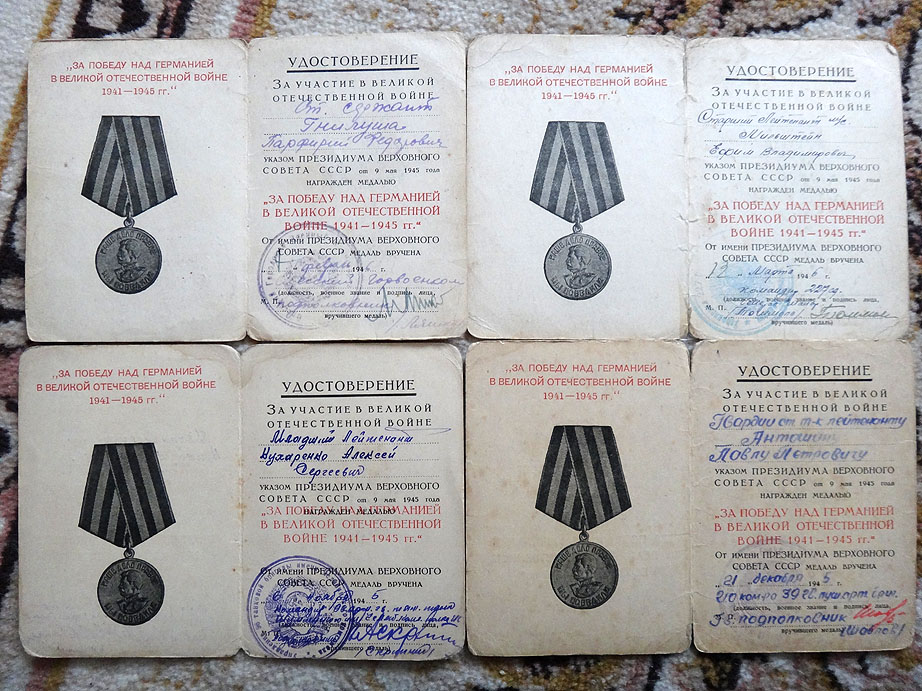 „ЗА ПОБЕДУ НАД ГЕРМАНИЕЙ
В ВЕЛИКОЙ ОТЕЧЕСТВЕННОЙ ВОЙНЕ
1941—1945 гг."
УДОСТОВЕРЕНИЕ
ЗА УЧАСТИЕ В ВЕЛИКОЙ
ОТЕЧЕСТВЕННОЙ ВОЙНЕ
Ст. сержант
Гнилуша
Парфирий Федорович
УКАЗОМ ПРЕЗИДИУМА ВЕРХОВНОГО
СОВЕТА СССР от 9 мая 1945 года
НАГРАЖДЕН МЕДАЛЬЮ
"ЗА ПОБЕДУ НАД ГЕРМАНИЕЙ
В ВЕЛИКОЙ ОТЕЧЕСТВЕННОЙ
ВОЙНЕ 1941—1945 гг."
От имени ПРЕЗИДИУМА ВЕРХОВНОГО
СОВЕТА СССР МЕДАЛЬ ВРУЧЕНА
февраля 1946 г.
горвоенком
(должность, военное звание и подпись лица,
М. П. подполковник
вручившего медаль)
„ЗА ПОБЕДУ НАД ГЕРМАНИЕЙ
В ВЕЛИКОЙ ОТЕЧЕСТВЕННОЙ ВОЙНЕ
1941—1945 гг."
УДОСТОВЕРЕНИЕ
ЗА УЧАСТИЕ В ВЕЛИКОЙ
ОТЕЧЕСТВЕННОЙ ВОЙНЕ
Старший Лейтенант м/с
Мильштейн
Ефим Владимирович
УКАЗОМ ПРЕЗИДИУМА ВЕРХОВНОГО
СОВЕТА СССР от 9 мая 1945 года
НАГРАЖДЕН МЕДАЛЬЮ
"ЗА ПОБЕДУ НАД ГЕРМАНИЕЙ
В ВЕЛИКОЙ ОТЕЧЕСТВЕННОЙ
ВОЙНЕ 1941—1945 гг."
От имени ПРЕЗИДИУМА ВЕРХОВНОГО
СОВЕТА СССР МЕДАЛЬ ВРУЧЕНА
12 „ Марта 1946 г.
командир
(должность, военное звание и подпись лица,
М. П.
вручившего медаль)
„ЗА ПОБЕДУ НАД ГЕРМАНИЕЙ
В ВЕЛИКОЙ ОТЕЧЕСТВЕННОЙ ВОЙНЕ
1941—1945 гг."
УДОСТОВЕРЕНИЕ
ЗА УЧАСТИЕ В ВЕЛИКОЙ
ОТЕЧЕСТВЕННОЙ ВОЙНЕ
Младший Лейтенант
Кухаренко Алексей
Сергеевич
УКАЗОМ ПРЕЗИДИУМА ВЕРХОВНОГО
СОВЕТА СССР от 9 мая 1945 года
НАГРАЖДЕН МЕДАЛЬЮ
"ЗА ПОБЕДУ НАД ГЕРМАНИЕЙ
В ВЕЛИКОЙ ОТЕЧЕСТВЕННОЙ
ВОЙНЕ 1941—1945 гг."
От имени ПРЕЗИДИУМА ВЕРХОВНОГО
СОВЕТА СССР МЕДАЛЬ ВРУЧЕНА
ноября 1945
Командир
(должность, военное звание и подпись лица,
М. П.
вручившего медаль)
„ЗА ПОБЕДУ НАД ГЕРМАНИЕЙ
В ВЕЛИКОЙ ОТЕЧЕСТВЕННОЙ ВОЙНЕ
1941—1945 гг."
УДОСТОВЕРЕНИЕ
ЗА УЧАСТИЕ В ВЕЛИКОЙ
ОТЕЧЕСТВЕННОЙ ВОЙНЕ
Гвардии ст. т-к лейтенанту
Антошину
Павлу Петровичу
УКАЗОМ ПРЕЗИДИУМА ВЕРХОВНОГО
СОВЕТА СССР от 9 мая 1945 года
НАГРАЖДЕН МЕДАЛЬЮ
"ЗА ПОБЕДУ НАД ГЕРМАНИЕЙ
В ВЕЛИКОЙ ОТЕЧЕСТВЕННОЙ
ВОЙНЕ 1941—1945 гг."
От имени ПРЕЗИДИУМА ВЕРХОВНОГО
СОВЕТА СССР МЕДАЛЬ ВРУЧЕНА
"21" декабря 1945
39 гв. пуш. арт. бриг.
(должность, военное звание и подпись лица,
Гв. подполковник
вручившего медаль)